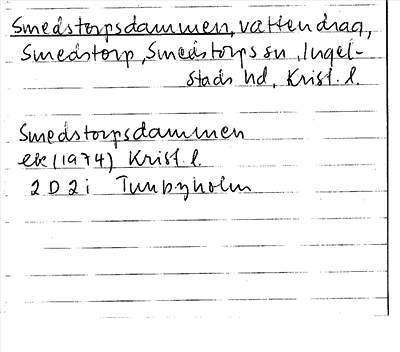 Smedstorpsdammen, vattendrag,
Smedstorp, Smedstorps sn, Ingel-
stads hd, Krist. l.
Smedstorpsdammen
ek (1974) Krist. l.
2 D 2 i Tunbyholm